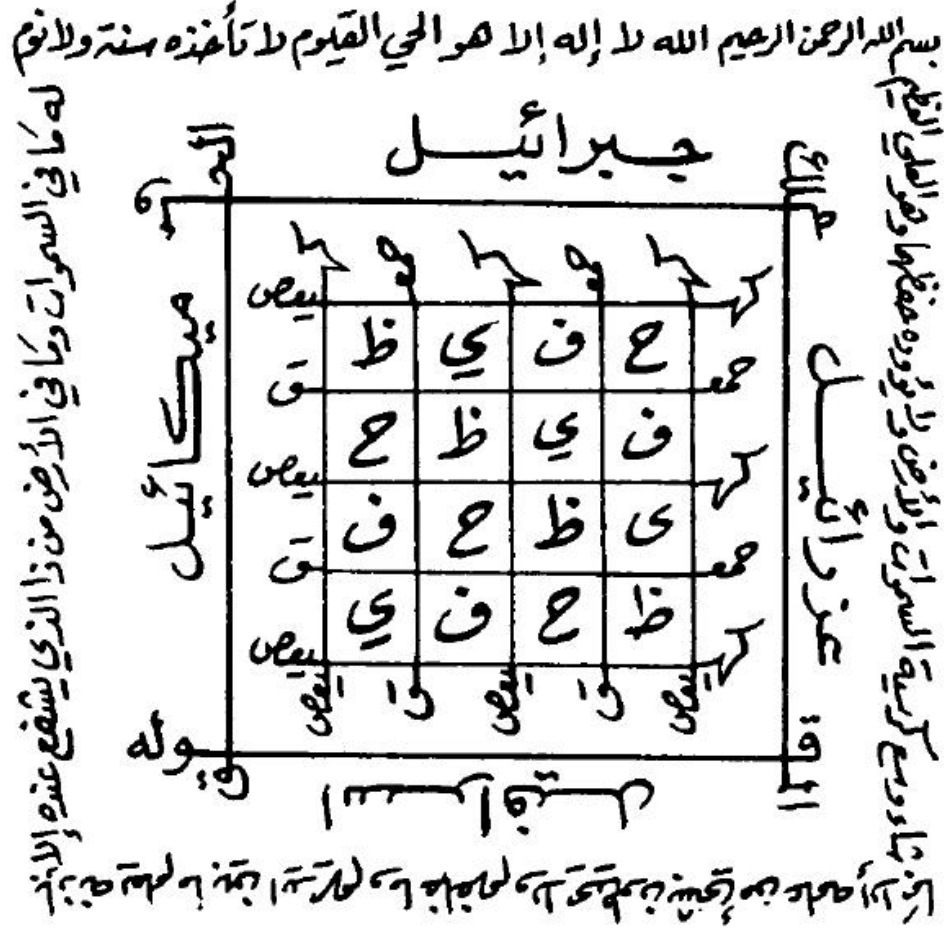 بسم الله الرحمن الرحيم الله لا إله إلا هو الحي القيوم لا تأخذه سنة ولا نوم
له ما في السموات وما في الأرض من ذا الذي يشفع عنده إلا
بإذنه يعلم ما بين ايديهم وما خلفهم ولا يحيطون بشيء من علمه إلا بما
شاء وسع كرسيه السموات والأرض ولا يؤوده حفظها وهو العلي العظيم
جبرائيل
ميكائيل
اسرافيل
عزرائيل
وله
كه يعص
ح ف ي ظ
حمع ق
ف ي ظ ح
كه يعص
ى ظ ح ف
حمع ق
ظ ح ف ي
كه يعص
يعص ق يعص ق يعص